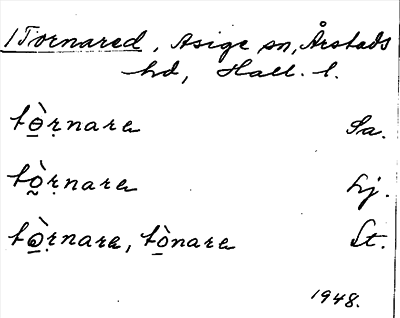 /Tornared, Asige sn, Årstads
hd, Hall. l.
tò̱ṛnarɐ Sa.
tò̰ṛnarɐ Lj.
tɔ̱̀ṛnarɐ, tò̱narɐ St.
1948.